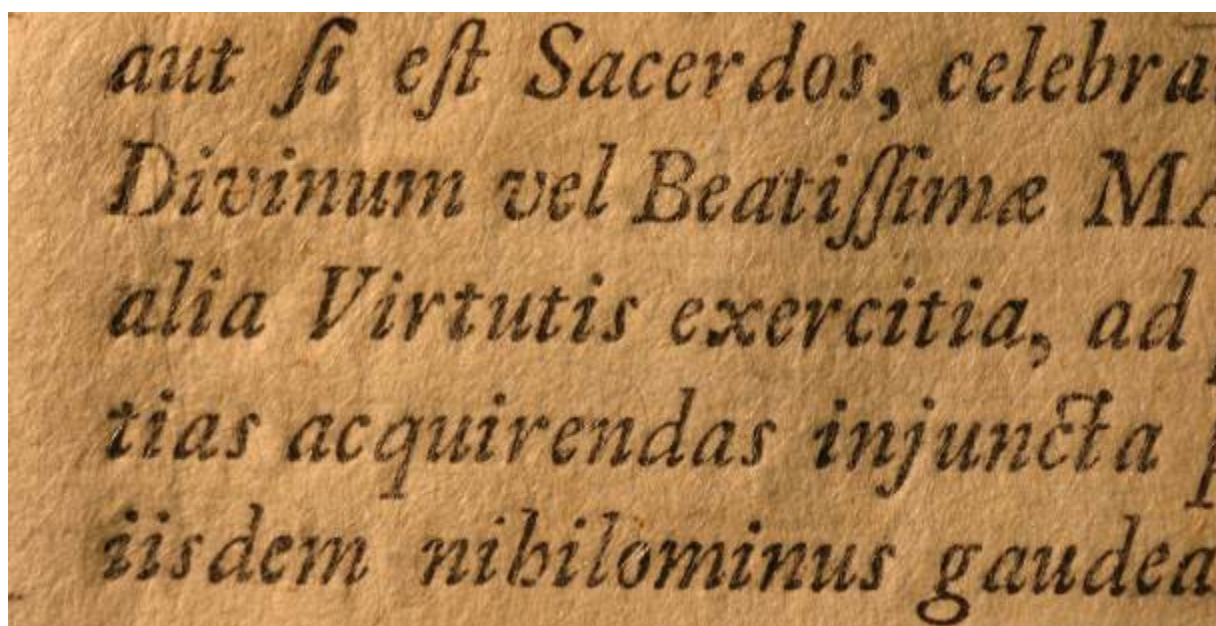 aut ſi eſt Sacerdos, celebra
Divinum vel Beatiſſimæ MA
alia Virtutis exercitia, ad
tias acquirendas injuncta
iisdem nihilominus gaudea